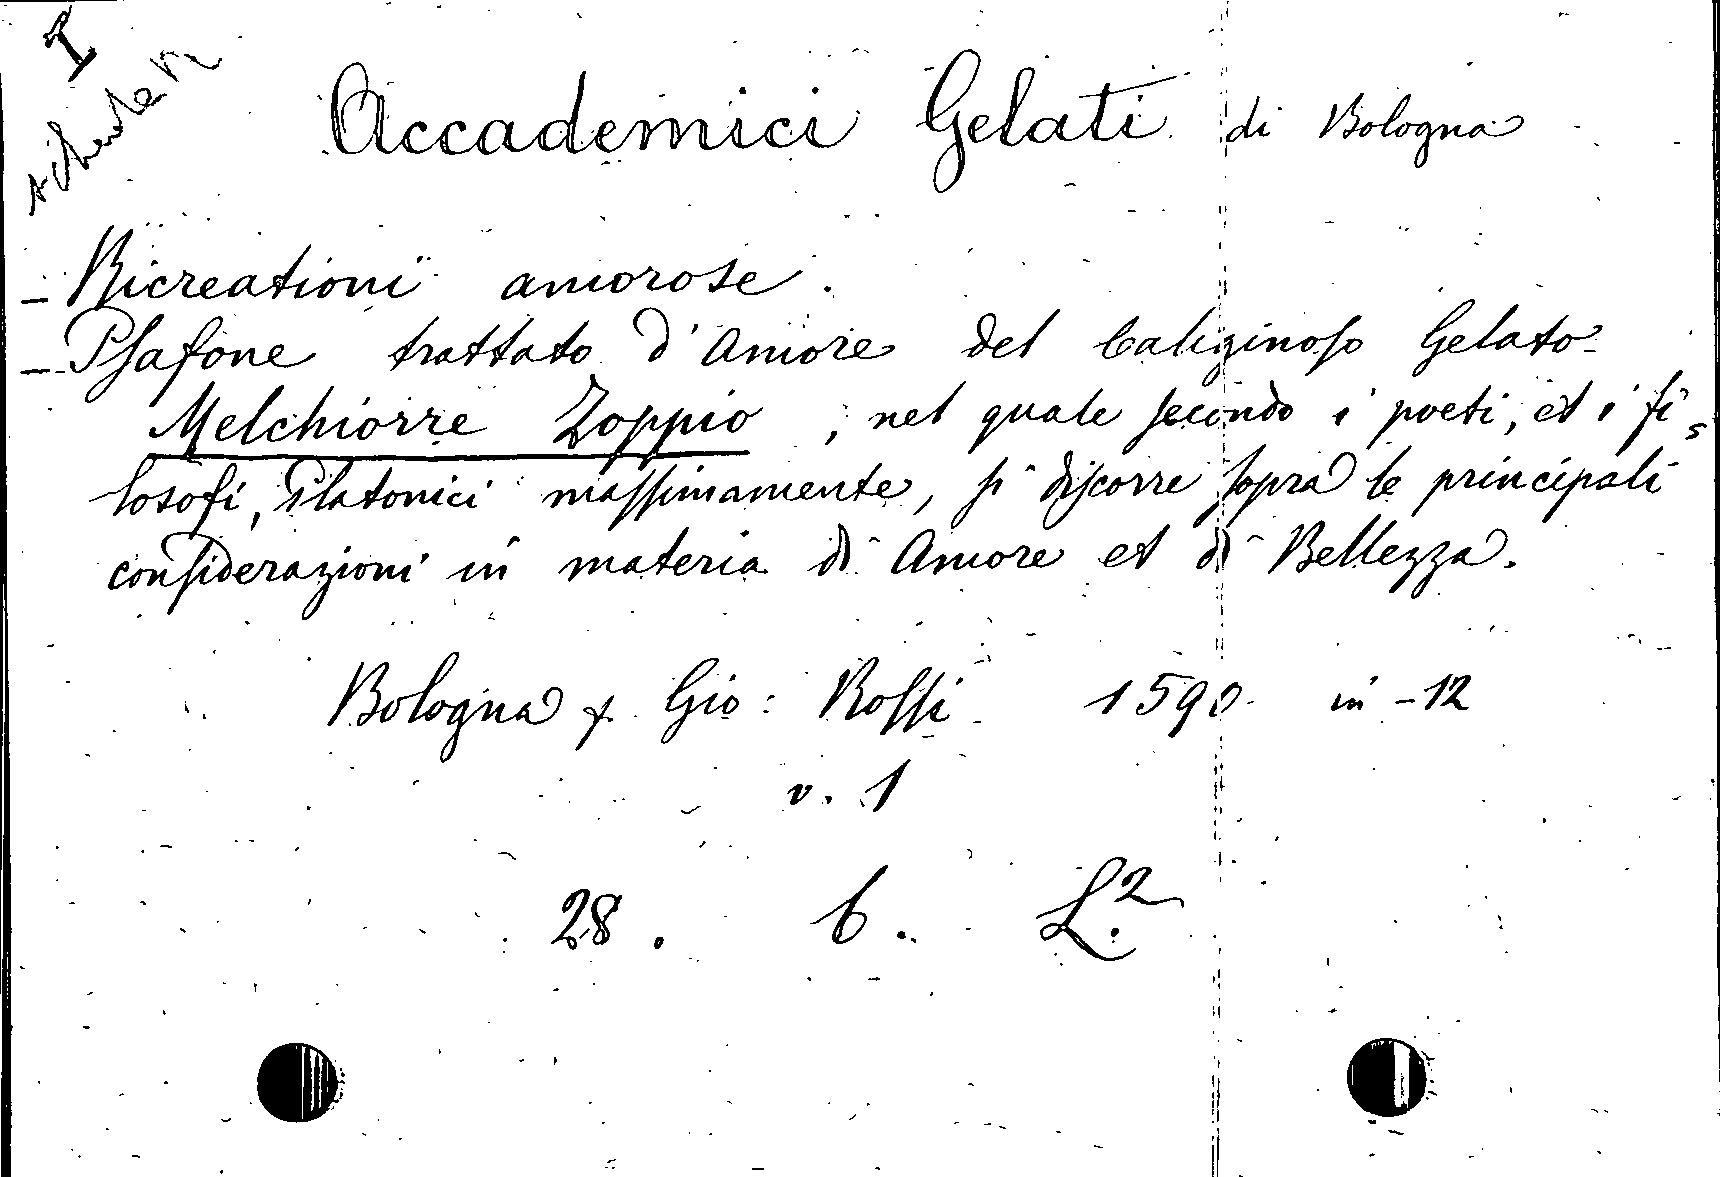 I
Accademici Gelati di Bologna
- Ricreationi amorose.
- Psafone trattato d'Amore del Caliginoso Gelato
Melchiorre Zoppio, nel quale secondo i poeti, et i fi=
losofi, Platonici massimamente, si discorre sopra le principali
considerazioni in materia di Amore et di Bellezza.
Bologna p. Gio: Rossi 1590 in-12
v. 1
28. 6. L.2